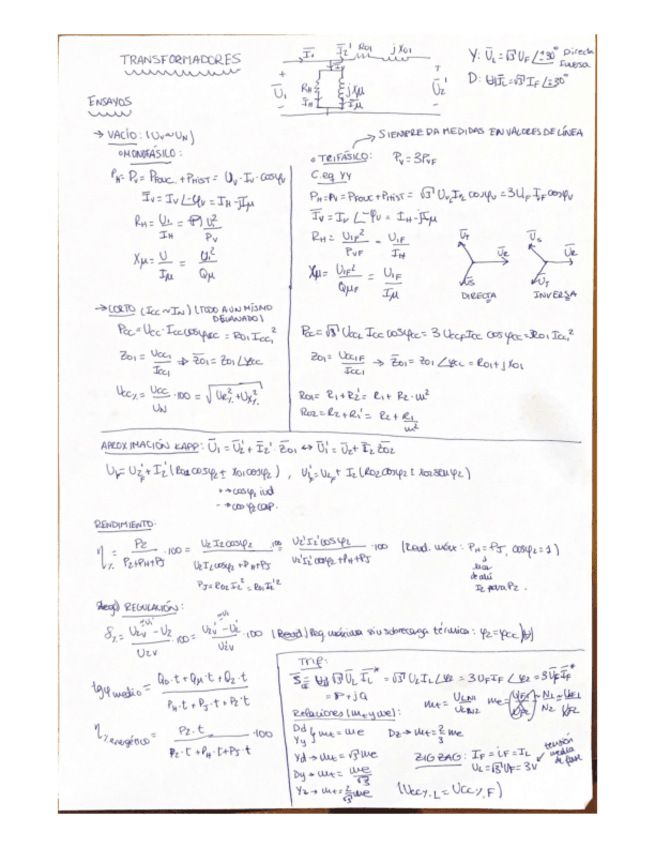 TRANSFORMADORES
I̅₁ I̅₂' R01 jX01
U̅₁ RH jXμ U̅₂'
IH Iμ
Y: U̅L = √3 UF ∠±30° Directa
Inversa
D: I̅L = √3 IF ∠±30°
ENSAYOS
→ VACÍO: (UV ~ UN)
MONOFÁSICO:
PH = PV = PFOUC. + PHIST = UV · IV · cosφV
I̅V = IV ∠-φV = IH - jIμ
RH = U1/IH = U1²/PV
Xμ = U/Iμ = U1²/Qμ
SIEMPRE DA MEDIDAS EN VALORES DE LÍNEA
TRIFÁSICO: PV = 3PVF
C.eq YY
PH = PV = PFOUC + PHIST = √3 UV IV cosφV = 3 UF IF cosφV
I̅V = IV ∠-φV = IH - jIμ
RH = U1F²/PVF = U1F/IH
Xμ = U1F²/QμF = U1F/Iμ
U̅T U̅R U̅S
DIRECTA
U̅S U̅R U̅T
INVERSA
→ CORTO (ICC ~ IN) (TODO A UN MISMO
DEVANADO)
PCC = UCC · ICC cosφCC = R01 ICC1²
Z01 = UCC1/ICC1 → Z̅01 = Z01 ∠φCC
UCC% = UCC/UN · 100 = √(UR%² + UX%²)
PCC = √3 UCCL ICC cosφCC = 3 UCCF ICC cosφCC = 3R01 ICC1²
Z01 = UCC1F/ICC1 → Z̅01 = Z01 ∠φCC = R01 + jX01
R01 = R1 + R2' = R1 + R2 · m²
R02 = R2 + R1' = R2 + R1/m²
APROXIMACIÓN KAPP: U̅1 = U̅2' + I̅2' · Z̅01 ↔ U̅1' = U̅2 + I̅2 Z̅02
+ → cosφ2 ind
- → cosφ2 cap.
RENDIMIENTO:
η% = P2/(P2+PH+PJ) · 100 = U2 I2 cosφ2/(U2 I2 cosφ2 + PH + PJ) · 100 = U2' I2' cosφ2/(U2' I2' cosφ2 + PH + PJ) · 100 (Rend. máx: PH = PJ, cosφ2 = 1)
PJ = R02 I2² = R01 I2'²
I2 para P2.
REGULACIÓN:
δ% = (U2V - U2)/U2V · 100 = (U2V' - U2')/U2V' · 100 Reg máxima sin sobrecarga térmica: φ2 = φCC
tgφmedio = (Q0 · t + Qμ · t + Q2 · t)/(PH · t + PJ · t + P2 · t)
η%energético = P2 · t/(P2 · t + PH · t + PJ · t) · 100
Trif:
= √3 UL IL ∠φ2 = 3 UF IF ∠φ2 = 3 U̅F I̅F*
= P + jQ
Relaciones (mt y me):
Dd
Yy } mt = me
Dz → mt = 2/3 me
Yd → mt = √3 me
Dy → mt = me/√3
Yz → mt = 2/√3 me
ZIG ZAG: IF = IF = IL
UL = √3 UF = 3V
tensión
media
de fase
(UCC%,L = UCC%,F)